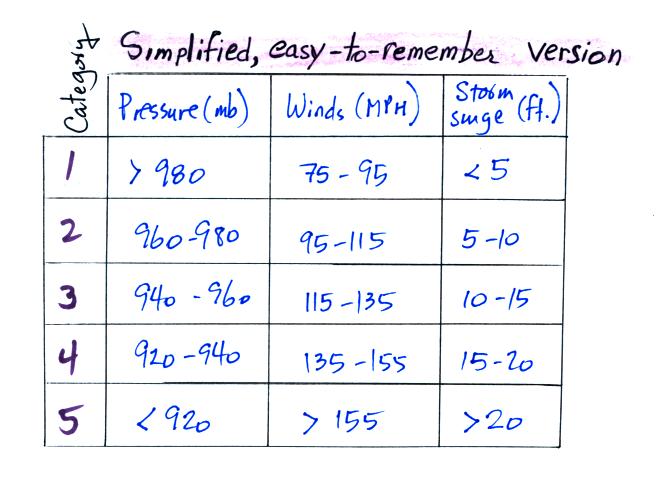 Simplified, easy-to-remember version
Category
Pressure (mb) Winds (MPH) Storm surge (ft.)
1 > 980 75 - 95 < 5
2 960-980 95-115 5-10
3 940 - 960 115-135 10-15
4 920-940 135-155 15-20
5 < 920 > 155 >20